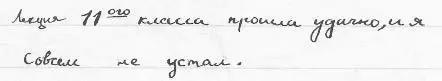 Лекция 11ого класса прошла удачно, и я
совсем не устал.